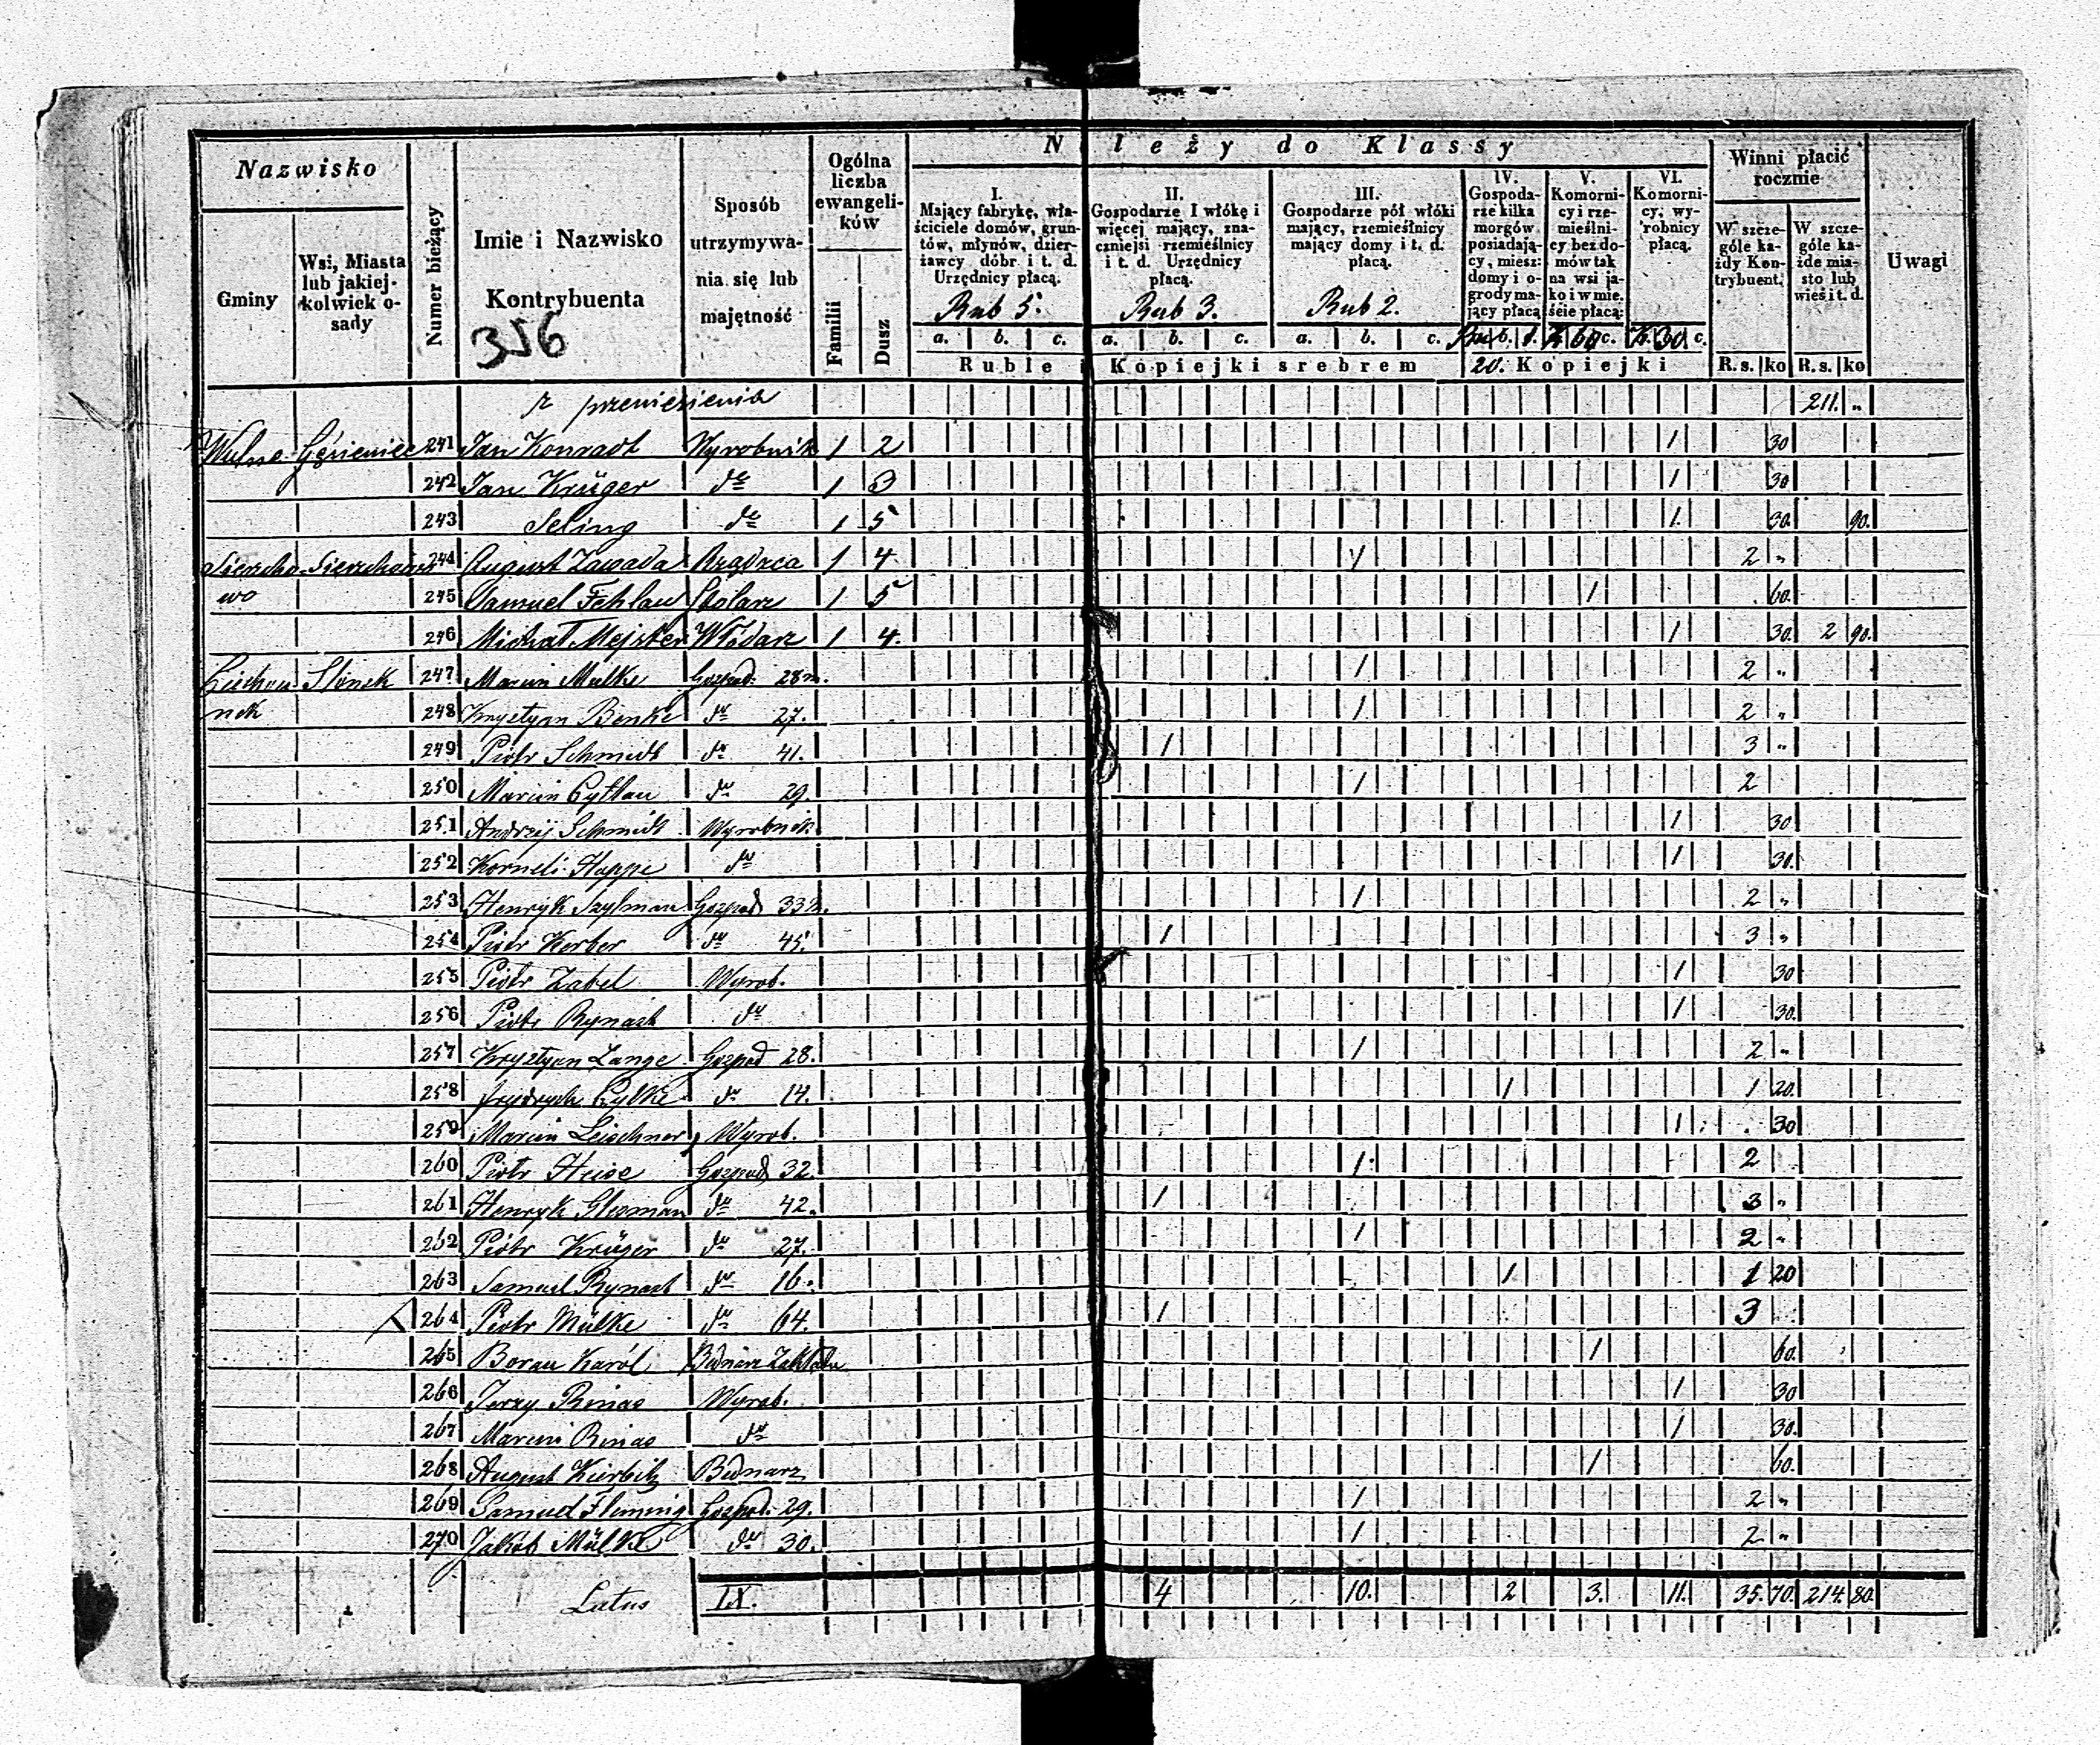 Nazwisko
Gminy
Wsi, Miasta lub jakiej-kolwiek o-sady
Numer bieżący
Imie i Nazwisko Kontrybuenta
356
Sposób utrzymywa-nia się lub majętność
Ogólna liczba ewangeli-ków
Familii
Dusz
Należy do Klassy
I. Mający fabrykę, wła-ściciele domów, grun-tów, młynów, dzier-żawcy dóbr i t. d. Urzędnicy płacą.
Rub 5.
II. Gospodarze 1 włókę i więcej mający, zna-czniejsi rzemieślnicy i t. d. Urzędnicy płacą.
Rub 3.
III. Gospodarze pół włóki mający, rzemieślnicy mający domy i t. d. płacą.
Rub 2.
IV. Gospoda-rze kilka morgów posiadają-cy, miesz: domy i o-grody ma-jący płacą
V. Komorni-cy i rze-mieślni-cy bez do-mów tak na wsi ja-ko i w mie-ście płacą:
K 60
VI. Komorni-cy, wy-robnicy płacą.
K. 30
Winni płacić rocznie
W szcze-góle ka-żdy Kon-trybuent.
W szcze-góle ka-żde mia-sto lub wieś i t. d.
Uwagi
a. b. c. a. b. c. a. b. c. b. c. c.
Ruble i Kopiejki srebrem 20. Kopiejki R.s. ko R.s. ko
z przeniesienia 211. „
241 Jan Konradt Wyrobnik 1 2 1 30
242 Jan Krüger do 1 3 1 30
243 Seling do 1 5 1. 30. 90.
244 August Zawada Rządzca 1 4 1 2 „
wo 245 Samuel Fehlau Stolarz 1 5 1 60.
246 Michał Mejster Włodarz 1 4. 1 30. 2 90.
Ciechoci Słonsk 247 Marcin Mulke Gospod: 28 m. 1 2 „
nek 248 Krystyan Benke do 27. 1 2 „
249 Piotr Schmidt do 41. 1 3 „
250 Marcin Cytlau do 29. 1 2
251 Andrzej Schmidt Wyrobnik 1 30
252 Korneli Happe do 1 30.
253 Henryk Szylman Gospod 33 m. 1 2 „
254 Piotr Kerber do 45. 1 3 „
255 Piotr Zabel Wyrob. 1 30
256 Piotr Rynast do 1 30.
257 Krystyan Lange Gospod 28. 1 2 „
258 Frydrych do 14. 1 1 20.
259 Marcin Leischner Wyrob. 1 30
260 Piotr Heise Gospod 32. 1 2
261 Henryk Glesman do 42. 1 3 „
262 Piotr Krüger do 27. 1 2 „
263 Samuel Rynast do 16. 1 1 20
264 Piotr Mülke do 64. 1 3
265 Borau Karól Bednarz Zakładu 1 60.
266 Jerzy Rinas Wyrob. 1 30
267 Marcin Rinas do 1 30.
268 August Kierbitz Bednarz 1 60.
269 Samuel Flemmig Gospod. 29. 1 2 „
270 Jakób Mülke do 30. 1 2 „
Latus IX. 4 10. 2 3. 11. 35. 70. 214. 80.